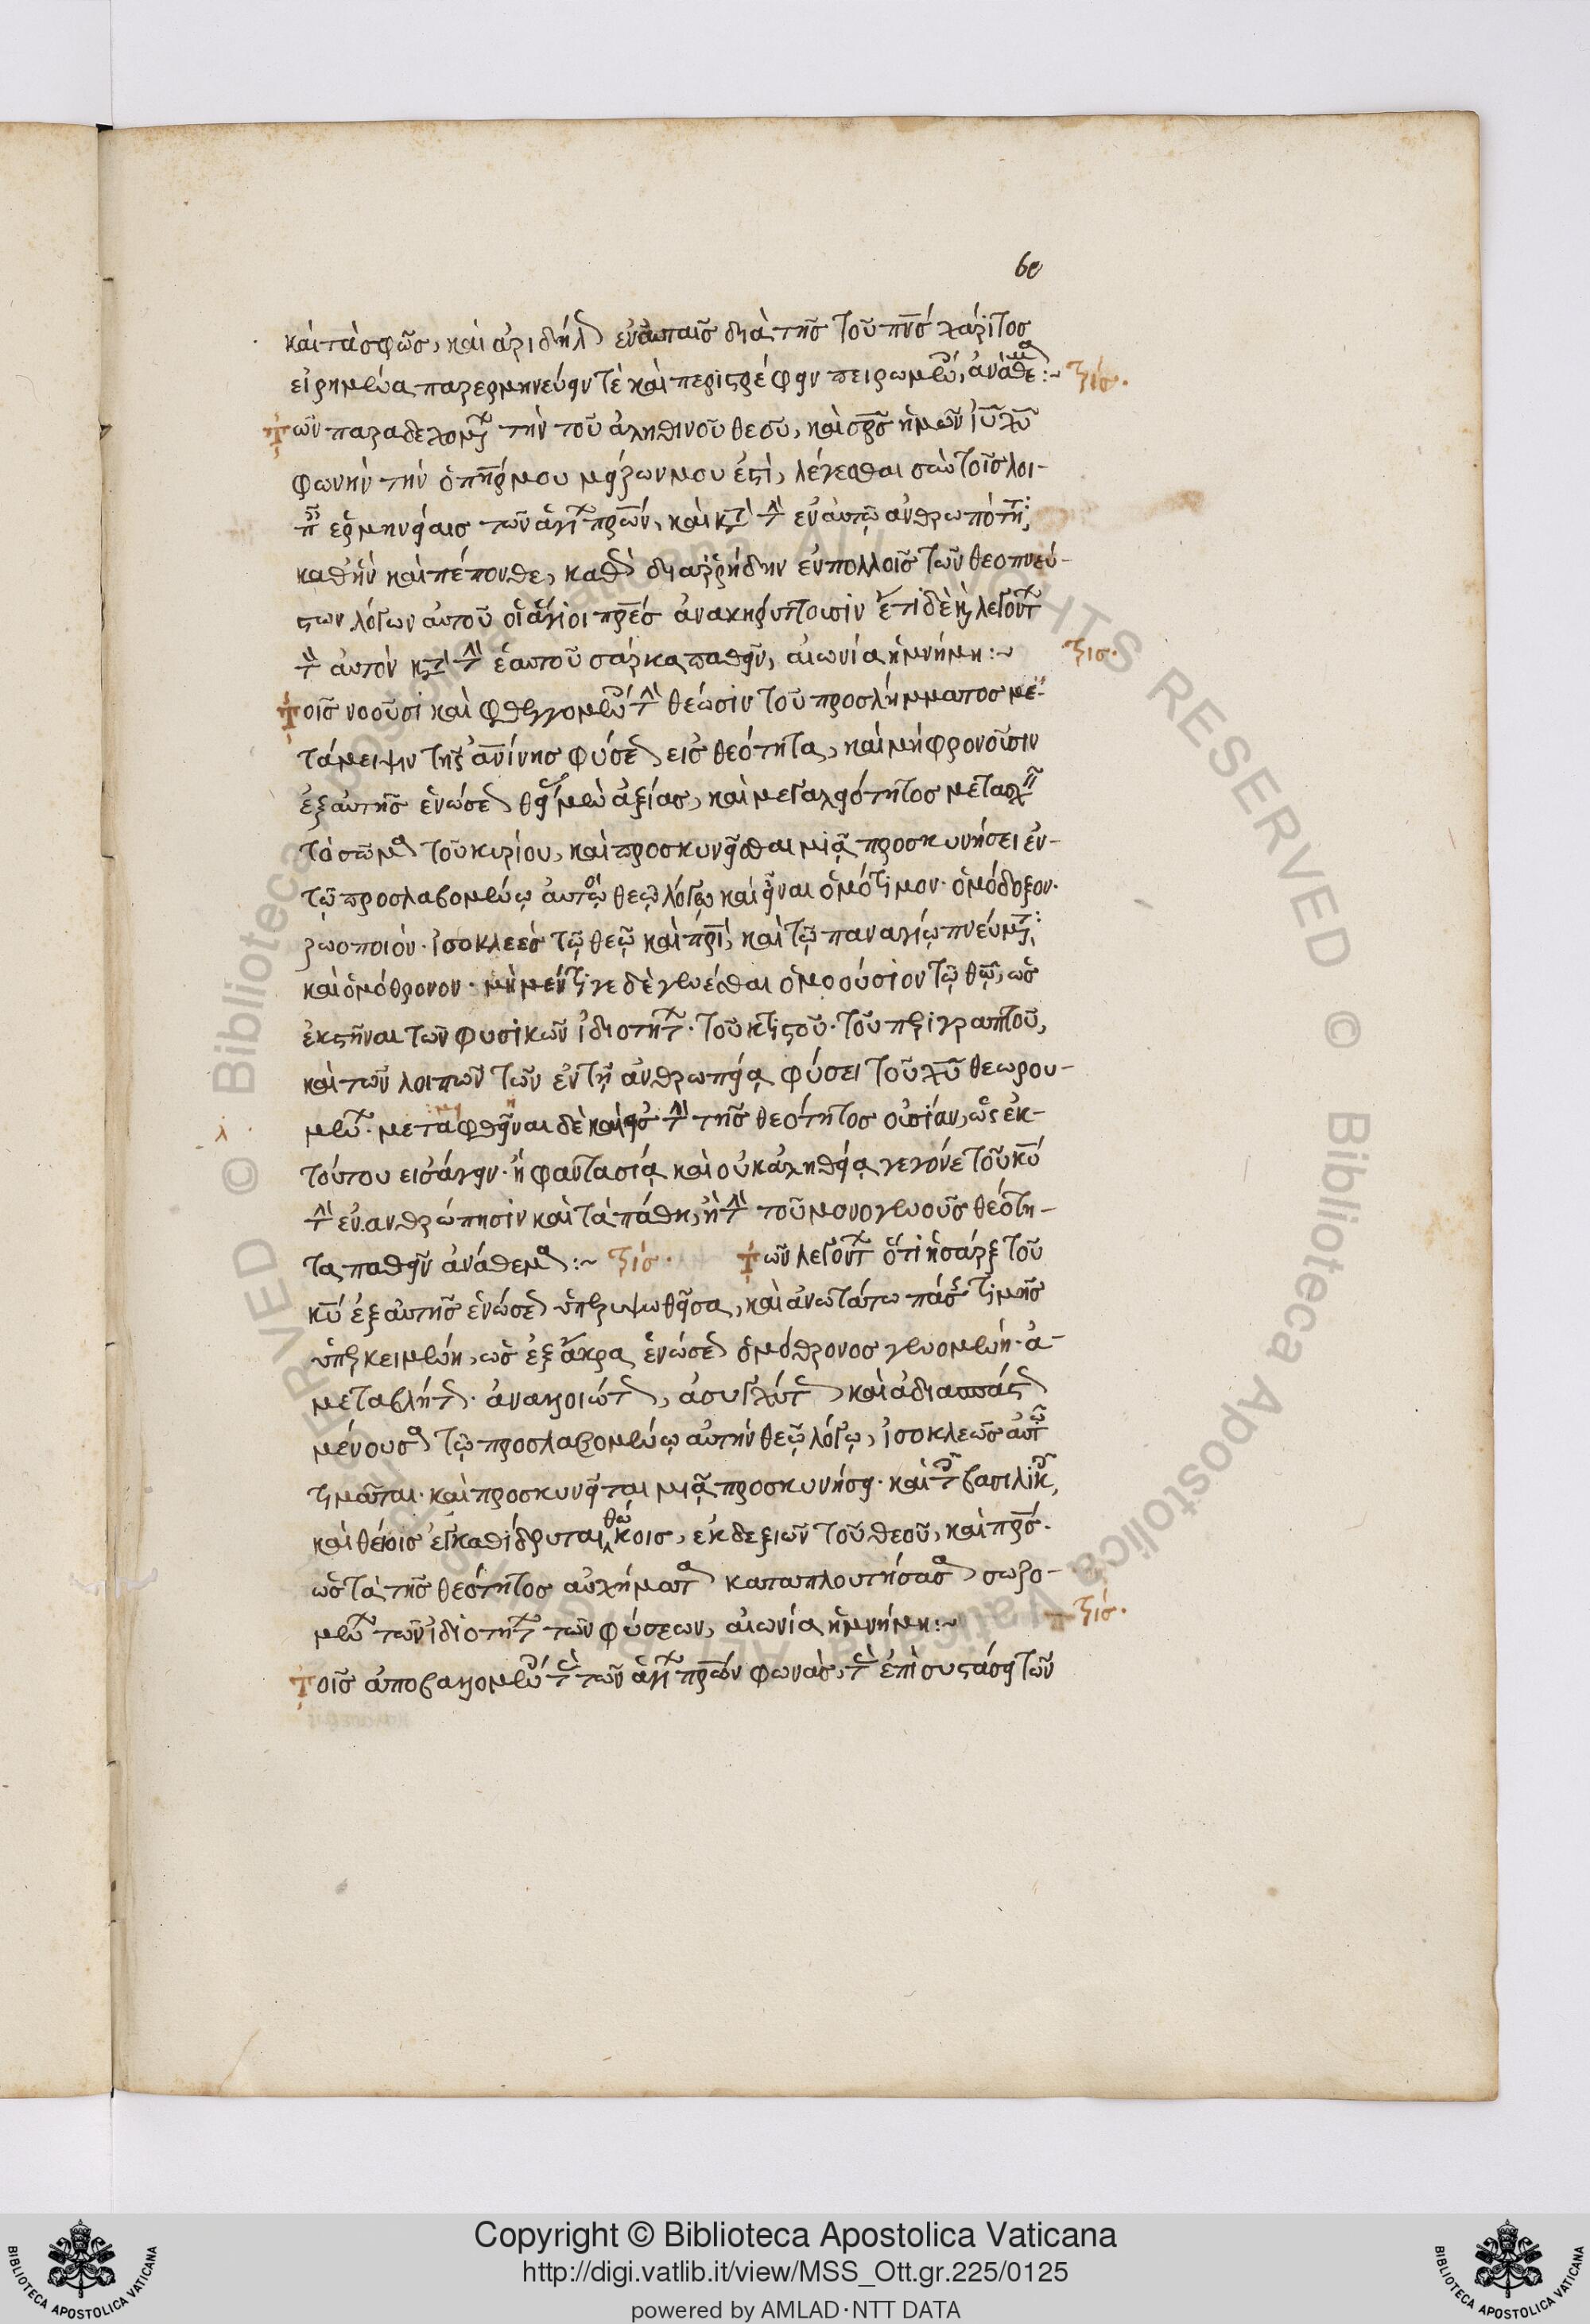 60
καὶ τὰ σαφῶς, καὶ ἀριδήλ ἐν αὐταῖς διὰ τῆς τοῦ πνς χάριτος
εἰρημένα παρερμηνεύειν τὲ καὶ περιστρέφειν πειρωμέν, ἀνάθεμα :~ τρίς.
Τῶν παραδεχομ τὴν τοῦ ἀληθινοῦ θεοῦ, καὶ σρς ἡμῶν ἰυ χυ
φωνὴν τὴν ὁ πηρ μου μείζων μου ἐστὶ, λέγεσθαι σὺν τοῖς λοι-
π ἑρμηνείαις τῶν ἁγί πρων, καὶ κτ τ ἐν αὐτῷ ἀνθρωπότητ,
καθ' ἣν καὶ πέπονθε, καθὼ διαρρήδην ἐν πολλοῖς τῶν θεοπνεύ-
στων λόγων αὐτοῦ οἱ ἅγιοι πρες ἀνακηρύττουσιν ἔτι δὲ κ λεγοντ
τ αὐτὸν κτ τ ἑαυτοῦ σάρκα παθεῖν, αἰωνία ἡ μνήμη :~ τρις.
Τοῖς νοοῦσι καὶ φθεγγομέν τ θέωσιν τοῦ προσλήμματος με-
τάμειψιν τῆς ἀνίνης φύσε εἰς θεότητα, καὶ μὴ φρονοῦσιν
ἐξ αὐτῆς ἑνώσε θεί μὲν ἀξίας, καὶ μεγαλειότητος μετασχ
τὸ σῶμα τοῦ κυρίου, καὶ προσκυνεῖσθαι μιᾷ προσκυνήσει ἐν-
τῷ προσλαβομένῳ αὐτὸ θεῷ λόγῳ καὶ εἶναι ὁμότιμον. ὁμόδοξον.
ζωοποιόν. ἰσοκλεὲς τῷ θεῷ καὶ πρὶ, καὶ τῷ παναγίῳ πνεύμτ,
καὶ ὁμόθρονον. μὴ μέντιγε δὲ γενέσθαι ὁμοούσιον τῷ θω, ὡς
ἐκστῆναι τῶν φυσικῶν ἰδιοτήτ. τοῦ κτιστοῦ. τοῦ περιγραπτοῦ,
καὶ τῶν λοιπῶν τῶν ἐν τῇ ἀνθρωπείᾳ φύσει τοῦ χυ θεωρου-
μέν. μεταφθῆναι δὲ καὶ εἰς τ τῆς θεότητος οὐσίαν, ὡς ἐκ-
τούτου εἰσάγειν. ἢ φαντασίᾳ καὶ οὐκ ἀληθείᾳ γεγόνε τοῦ κυ
τ ἐνανθρώπησιν καὶ τὰ πάθη, ἢ τ τοῦ μονογενοῦς θεότη-
τα παθεῖν ἀνάθεμα :~ τρίς. Τῶν λεγοντ ὅτι ἡ σὰρξ τοῦ
κυ ἐξ αὐτῆς ἑνώσε ὑπερυψωθεῖσα, καὶ ἀνωτάτω πάσ τιμῆς
ὑπερκειμένη, ὡς ἐξ ἄκρα ἑνώσε ὁμόθρονος γενομένη. ἀ-
μεταβλήτ. ἀναλλοιώτ, ἀσυγχύτ καὶ ἀδιασπάστ
μένουσα τῷ προσλαβομένῳ αὐτὴν θεῷ λόγῳ, ἰσοκλεῶς αὐτῷ
τιμᾶται. καὶ προσκυνεῖται μιᾷ προσκυνήσει. καὶ τ βασιλικ,
καὶ θείοις ἐγκαθίδρυται θώκοις, ἐκ δεξιῶν τοῦ θεοῦ, καὶ πρς.
ὡς τὰ τῆς θεότητος αὐχήματ καταπλουτήσασ σωζο-
μέν τῶν ἰδιοτήτ τῶν φύσεων, αἰωνία ἡ μνήμη :~ τρίς.
Τοῖς ἀποβαλλομέν τ τῶν ἁγί πρων φωνὰς, τ ἐπὶ συστάσει τῶν
Copyright © Biblioteca Apostolica Vaticana
http://digi.vatlib.it/view/MSS_Ott.gr.225/0125
powered by AMLAD·NTT DATA